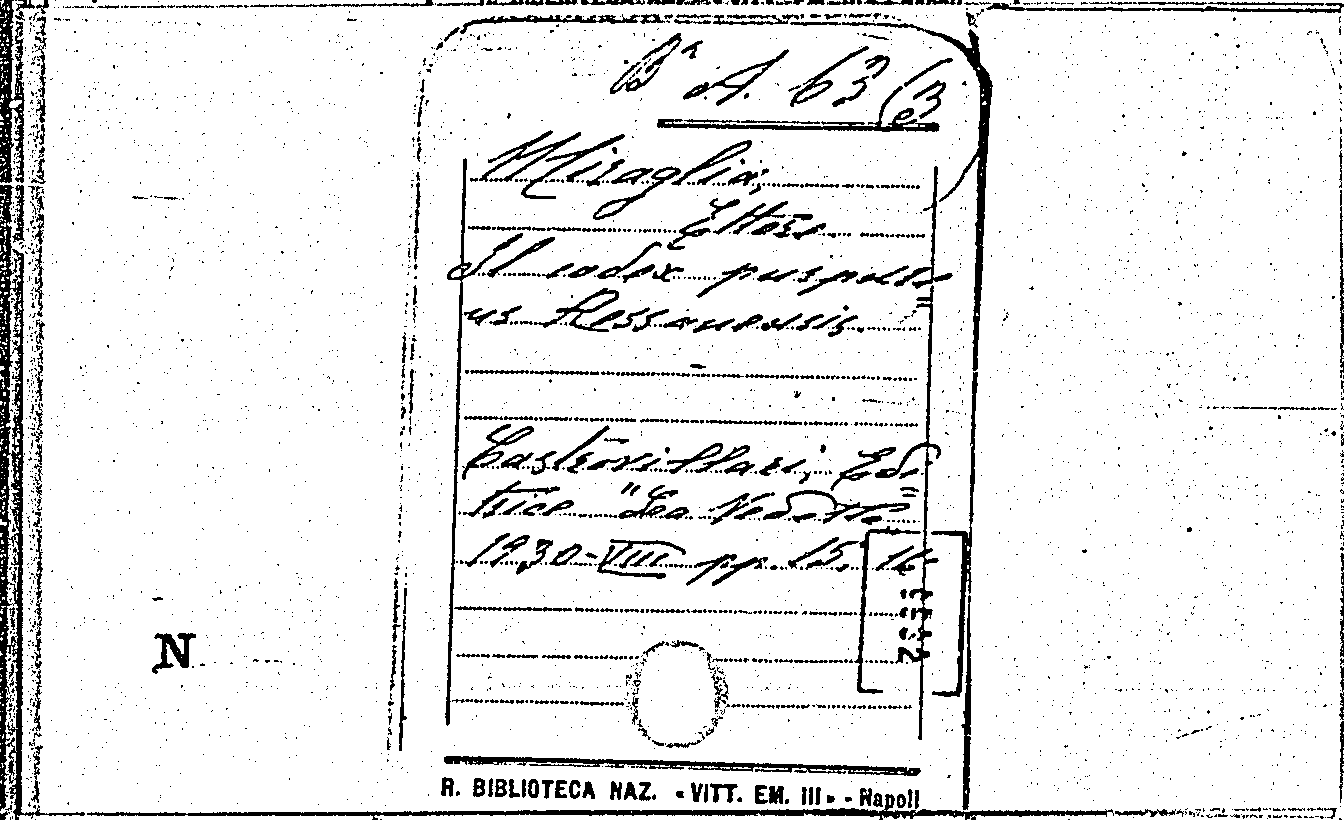 Bª A. 63 (3
Miraglia,
Ettore.
Il codex purpure=
us Rossanensis.
Castrovillari, Edi=
trice "La Vedetta
1930-VIII pp. 15. 16
N
R. BIBLIOTECA NAZ. «VITT. EM. III» - Napoli